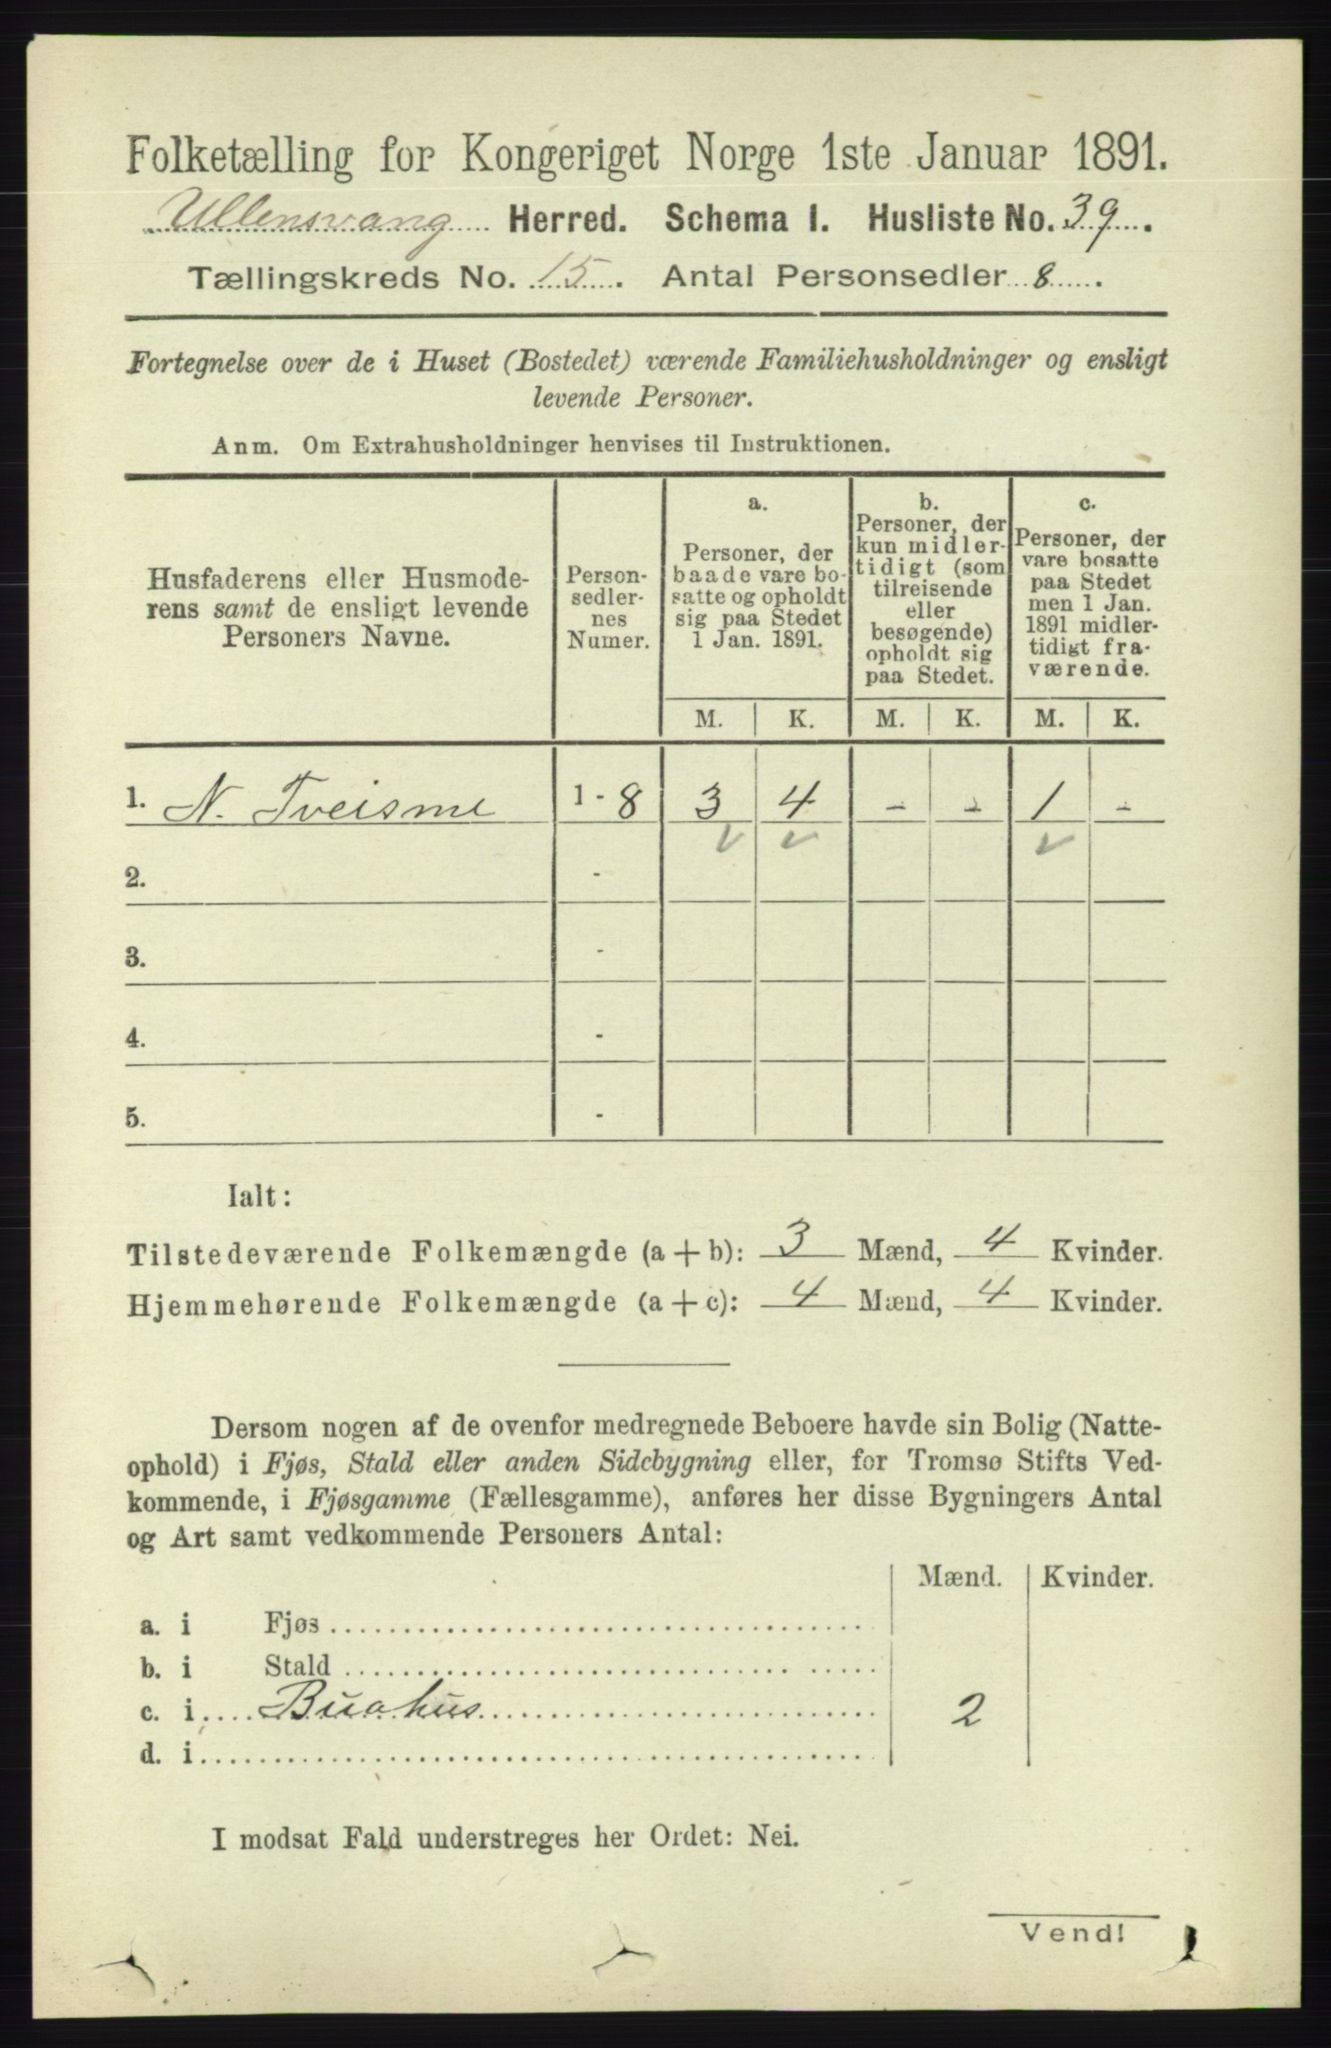 Folketælling for Kongeriget Norge 1ste Januar 1891.
Ullensvang Herred. Schema I. Husliste No. 39.
Tællingskreds No. 15. Antal Personsedler 8.
Fortegnelse over de i Huset (Bostedet) værende Familiehusholdninger og ensligt
levende Personer.
Anm. Om Extrahusholdninger henvises til Instruktionen.
Husfaderens eller Husmode-
rens samt de ensligt levende
Personers Navne.
Person-
sedler-
nes
Numer.
a.
Personer, der
baade vare bo-
satte og opholdt
sig paa Stedet
1 Jan. 1891.
b.
Personer, der
kun midler-
tidigt (som
tilreisende
eller
besøgende)
opholdt sig
paa Stedet.
c.
Personer, der
vare bosatte
paa Stedet
men 1 Jan.
1891 midler-
tidigt fra-
værende.
M. K. M. K. M. K.
1. N. Tveisme 1 - 8 3 4 - - 1 -
2. -
3. -
4. -
5. -
Ialt:
Tilstedeværende Folkemængde (a + b): 3 Mænd, 4 Kvinder.
Hjemmehørende Folkemængde (a + c): 4 Mænd, 4 Kvinder.
Dersom nogen af de ovenfor medregnede Beboere havde sin Bolig (Natte-
ophold) i Fjøs, Stald eller anden Sidebygning eller, for Tromsø Stifts Ved-
kommende, i Fjøsgamme (Fællesgamme), anføres her disse Bygningers Antal
og Art samt vedkommende Personers Antal:
Mænd. Kvinder.
a. i Fjøs
b. i Stald
c. i Buahus 2
d. i
I modsat Fald understreges her Ordet: Nei.
Vend!